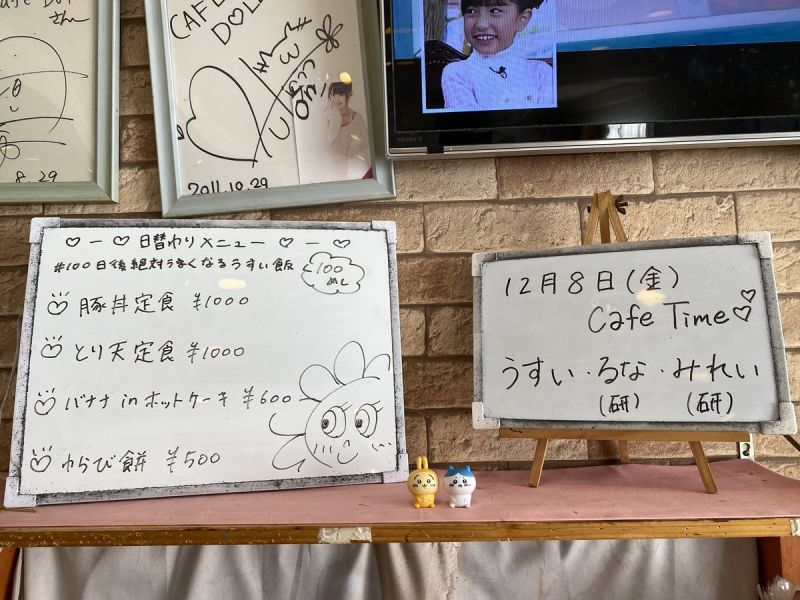 CAFE
DOLL
さん
8.29
2011.10.29
♡ー♡日替わりメニュー♡ー♡
#100日後絶対うまくなるうすい飯
100
めし
豚丼定食 ¥1000
とり天定食 ¥1000
バナナinホットケーキ ¥600
わらび餅 ¥500
12月8日(金)
Cafe Time♡♡
うすい・るな・みれい
(研) (研)